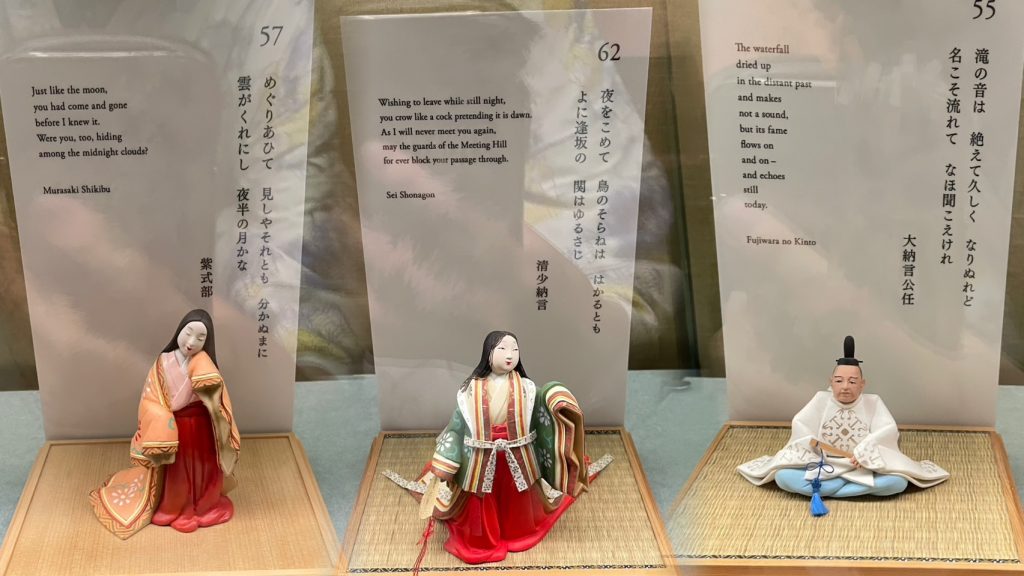 57
めぐりあひて 見しやそれとも 分かぬまに
雲がくれにし 夜半の月かな
紫式部
Just like the moon,
you had come and gone
before I knew it.
Were you, too, hiding
among the midnight clouds?
Murasaki Shikibu
62
夜をこめて 鳥のそらねは はかるとも
よに逢坂の 関はゆるさじ
清少納言
Wishing to leave while still night,
you crow like a cock pretending it is dawn.
As I will never meet you again,
may the guards of the Meeting Hill
for ever block your passage through.
Sei Shonagon
55
滝の音は 絶えて久しく なりぬれど
名こそ流れて なほ聞こえけれ
大納言公任
The waterfall
dried up
in the distant past
and makes
not a sound,
but its fame
flows on
and on –
and echoes
still
today.
Fujiwara no Kinto